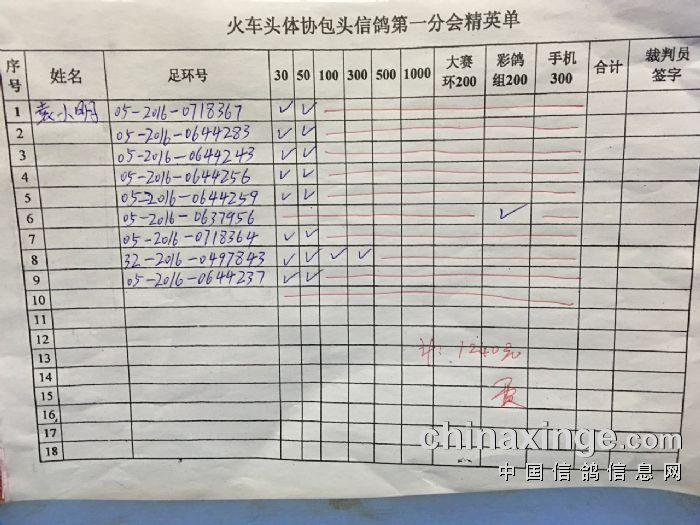 火车头体协包头信鸽第一分会精英单
序号 姓名 足环号 30 50 100 300 500 1000 大赛环200 彩鸽组200 手机300 合计 裁判员签字
1 袁小明 05-2016-0718367 ✓ ✓
2 05-2016-0644283 ✓ ✓
3 05-2016-0644243 ✓ ✓
4 05-2016-0644256 ✓ ✓
5 05-2016-0644259 ✓ ✓
6 05-2016-0637956 ✓
7 05-2016-0718364 ✓ ✓
8 32-2016-0497843 ✓ ✓ ✓ ✓
9 05-2016-0644237 ✓ ✓
10
11
12
13 计: 1240元
14
15
16
17
18
chinaxinge.com
中国信鸽信息网